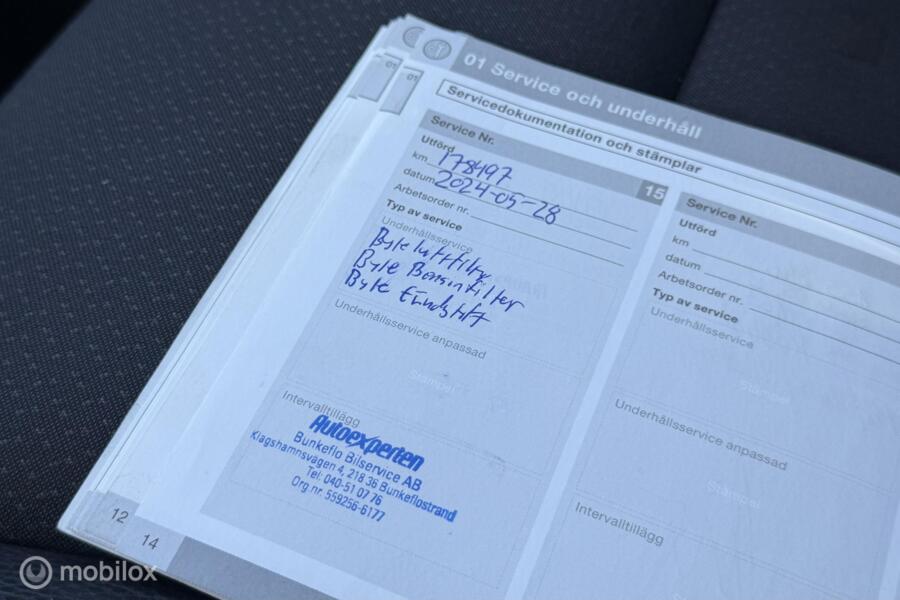 01
01
01 Service och underhåll
Servicedokumentation och stämplar
Service Nr. 15
Utförd
km 178497
datum 2024-05-28
Arbetsorder nr.
Typ av service
Underhållsservice
Byte luftfilter
Byte Bensinfilter
Byte tändstift
Underhållsservice anpassad
Stämpel
Intervalltillägg
Autoexperten
Bunkeflo Bilservice AB
Klagshamnsvägen 4, 218 36 Bunkeflostrand
Tel: 040-51 07 76
Org.nr. 559256-6177
Service Nr.
Utförd
km
datum
Arbetsorder nr.
Typ av service
Underhållsservice
Stämpel
Underhållsservice anpassad
Stämpel
Intervalltillägg
12
14
mobilox